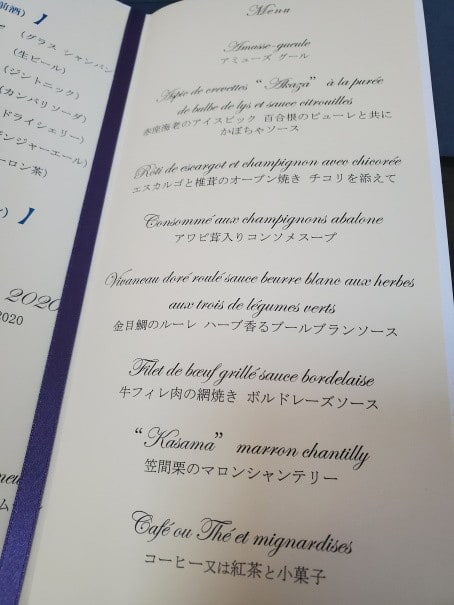 前酒）】
（グラス シャンパン
（生ビール）
（ジントニック）
（カンパリソーダ）
ドライシェリー）
ンジャーエール）
ーロン茶）
】
2020
2020
Menu
Amusse-gueule
アミューズ グール
Aspic de crevettes “Akaza” à la purée
de bulbe de lys et sauce citrouilles
赤座海老のアイスピック 百合根のピューレと共に
かぼちゃソース
Rôti de escargot et champignon avec chicorée
エスカルゴと椎茸のオーブン焼き チコリを添えて
Consommé aux champignons abalone
アワビ茸入りコンソメスープ
Vivaneau doré roulé sauce beurre blanc aux herbes
aux trois de légumes verts
金目鯛のルーレ ハーブ香るブールブランソース
Filet de bœuf grillé sauce bordelaise
牛フィレ肉の網焼き ボルドレーズソース
“Kasama” marron chantilly
笠間栗のマロンシャンテリー
Café ou Thé et mignardises
コーヒー又は紅茶と小菓子